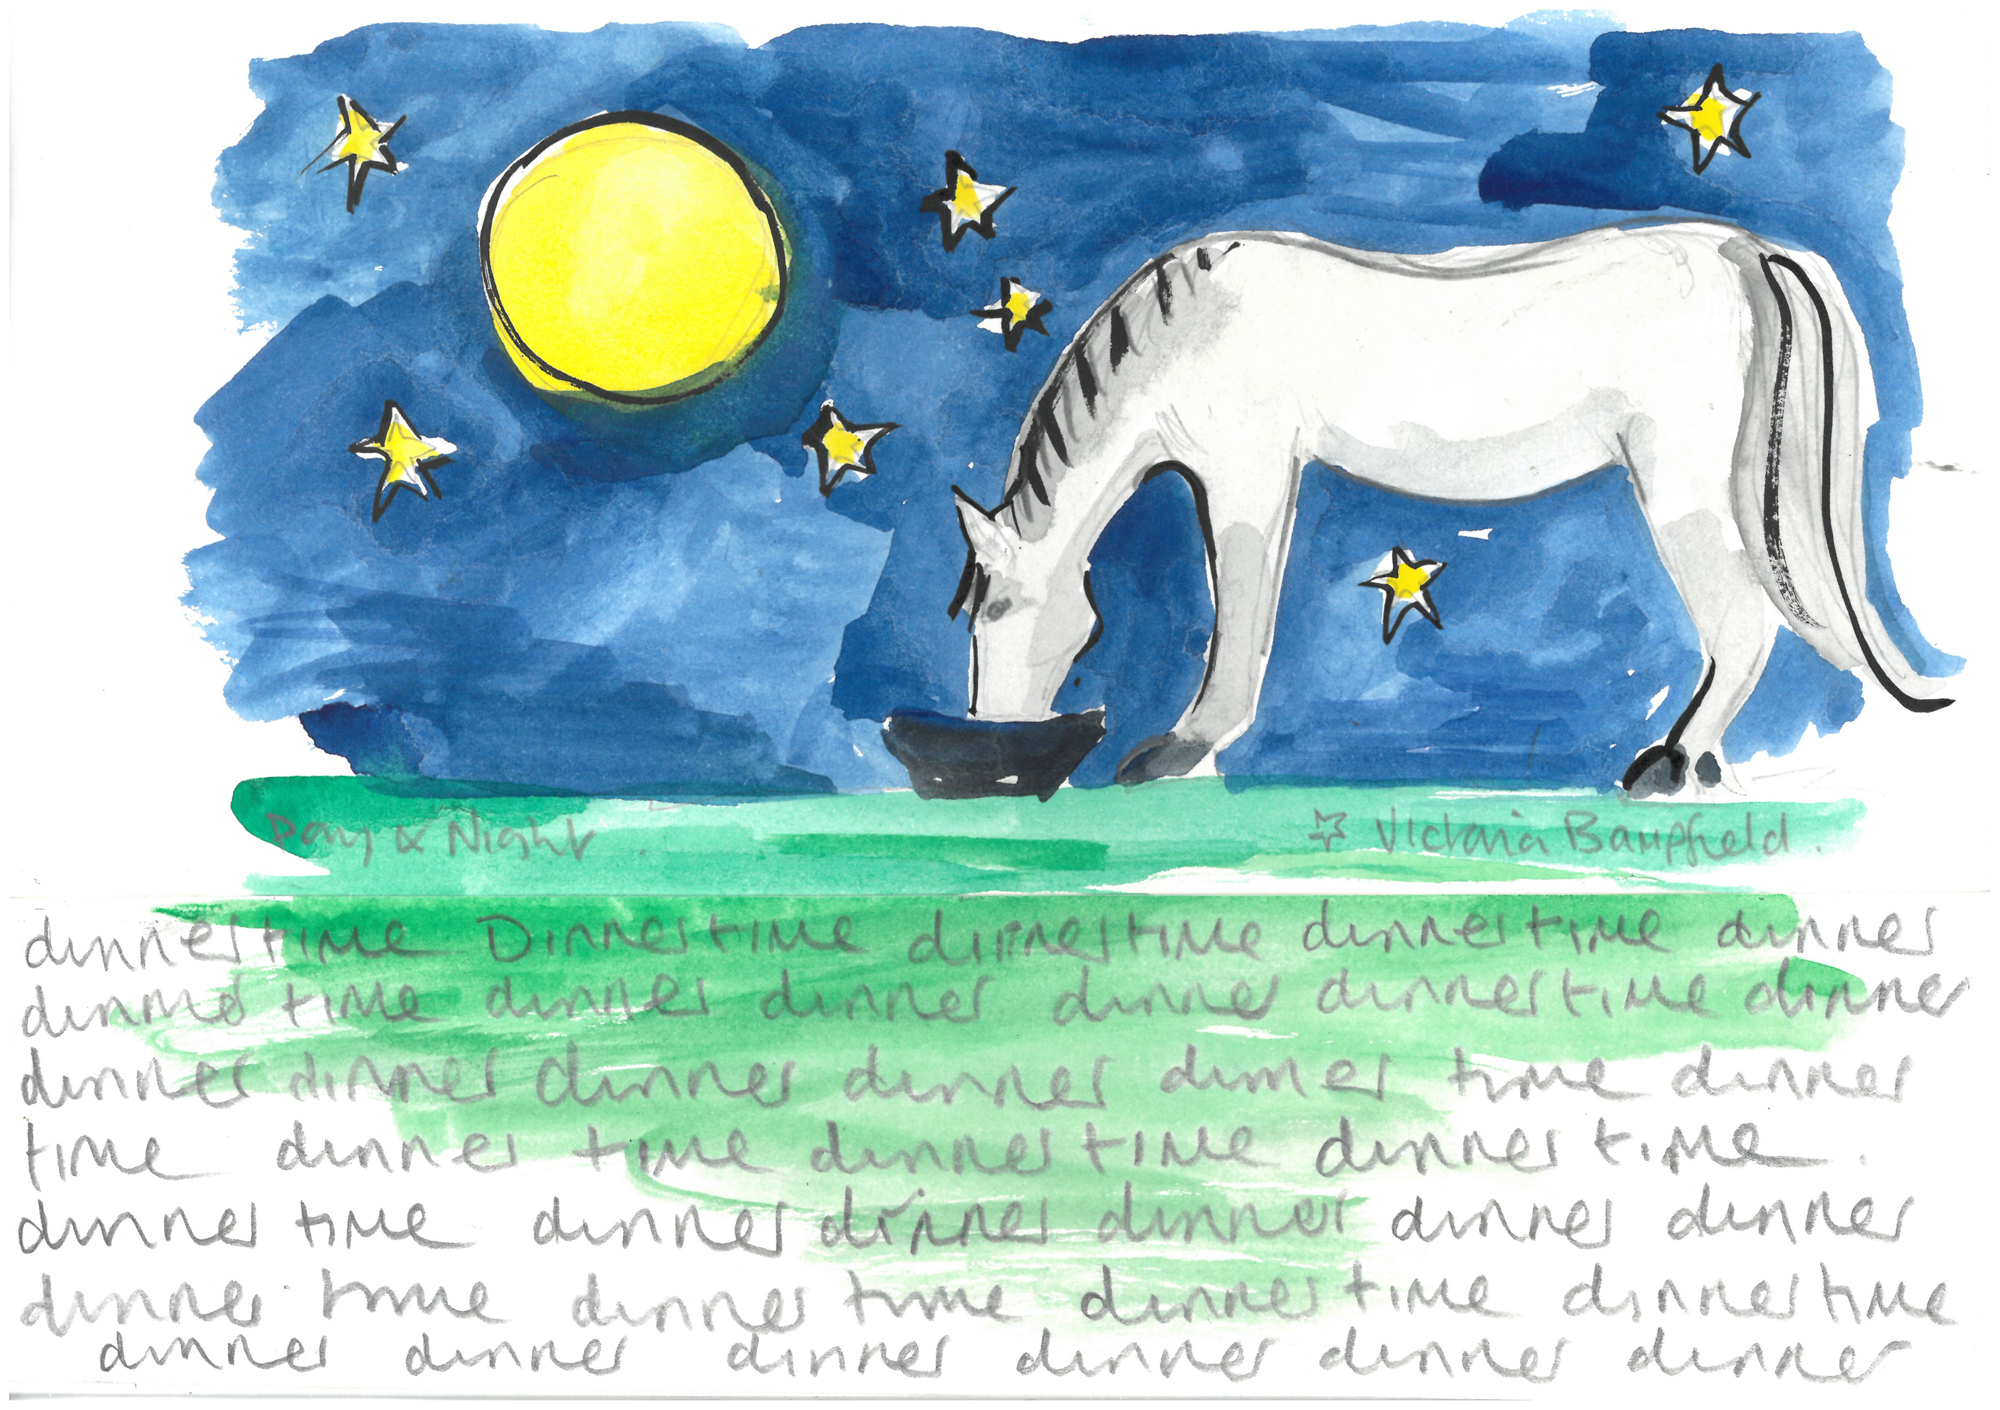 Day & Night.
☆ Victoria Bampfield.
dinnertime Dinnertime dinnertime dinnertime dinner
dinner time dinner dinner dinner dinnertime dinner
dinner dinner dinner dinner dinner time dinner
time dinner time dinner time dinner time.
dinner time dinner dinner dinner dinner dinner
dinner time dinner time dinner time dinner time
dinner dinner dinner dinner dinner dinner